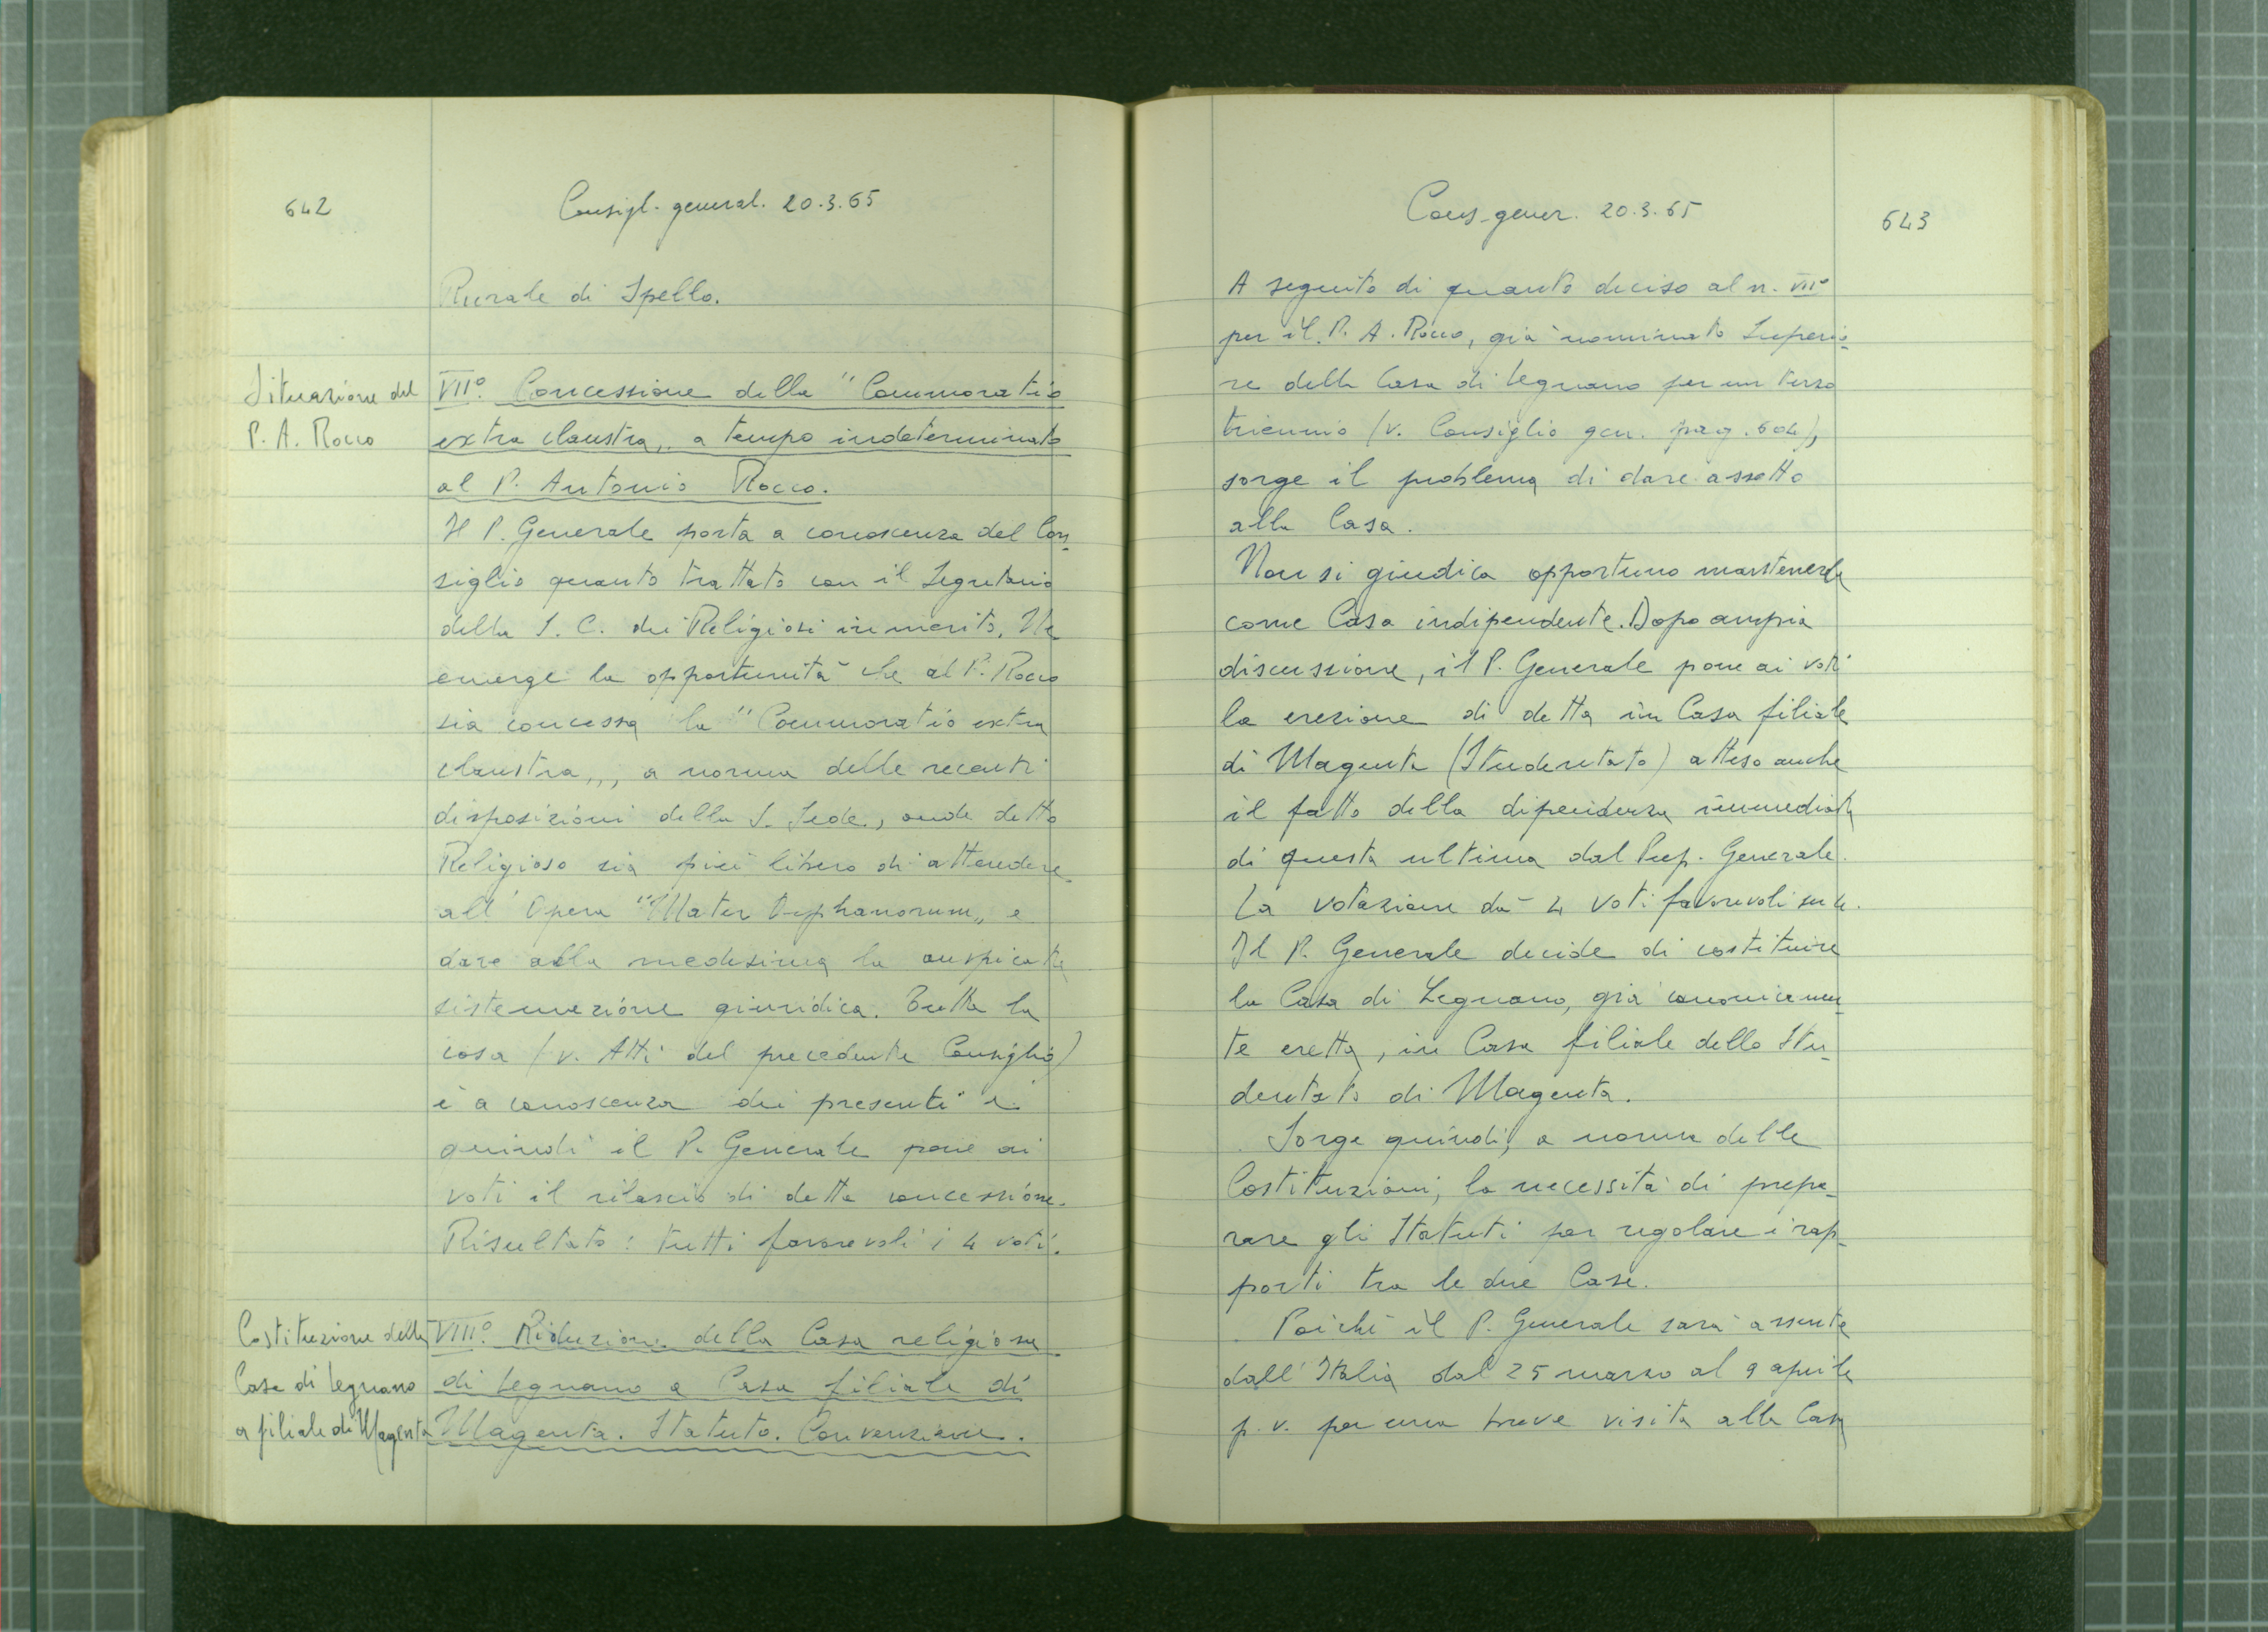 642
Consigl. general. 20.3.65
Rurale di Spello.
Situazione del
P. A. Rocco
VII° Concessione della "Commoratio
extra claustra,, a tempo indeterminato
al P. Antonio Rocco.
Il P. Generale porta a conoscenza del Con-
siglio quanto trattato con il Segretario
della S. C. dei Religiosi in merito. Ne
emerge la opportunità che al P. Rocco
sia concessa la "Commoratio extra
claustra,,, a norma delle recenti
disposizioni della S. Sede, onde detto
Religioso sia più libero di attendere
all'Opera "Mater Orphanorum,, e
dare alla medesima la auspicata
sistemazione giuridica. Tutta la
cosa (v. Atti del precedente Consiglio)
è a conoscenza dei presenti e
quindi il P. Generale pone ai
voti il rilascio di detta concessione.
Risultato: tutti favorevoli i 4 voti.
Costituzione della
Casa di Legnano
a filiale di Magenta
VIII° Riduzione della Casa religiosa
di Legnano a Casa filiale di
Magenta. Statuto. Convenzione.
Cons. gener. 20.3.65
643
A seguito di quanto deciso al n. VII°
per il P. A. Rocco, già nominato Superio-
re della Casa di Legnano per un terzo
triennio (v. Consiglio gen. pag. 604),
sorge il problema di dare assetto
alla Casa.
Non si giudica opportuno mantenerla
come Casa indipendente. Dopo ampia
discussione, il P. Generale pone ai voti
la erezione di detta in Casa filiale
di Magenta (Studentato) atteso anche
il fatto della dipendenza immediata
di questa ultima dal Prep. Generale.
La votazione dà 4 voti favorevoli su 4.
Il P. Generale decide di costituire
la Casa di Legnano, già canonicamen-
te eretta, in Casa filiale dello Stu-
dentato di Magenta.
Sorge quindi, a norma delle
Costituzioni, la necessità di prepa-
rare gli Statuti per regolare i rap-
porti tra le due Case.
Poiché il P. Generale sarà assente
dall'Italia dal 25 marzo al 9 aprile
p. v. per una breve visita alla Casa